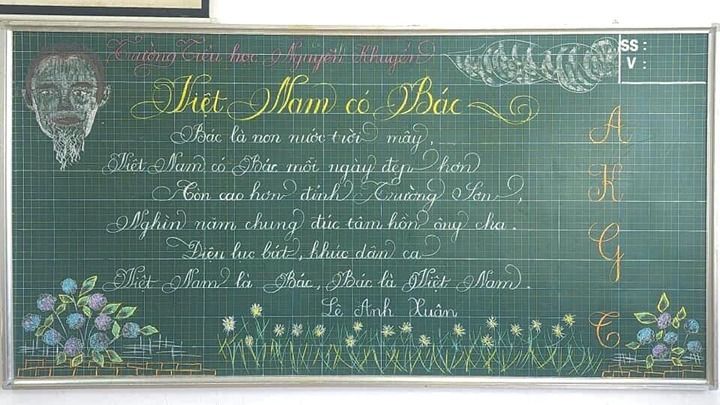 Trường Tiểu học Nguyễn Khuyến
SS :
V :
Việt Nam có Bác
Bác là non nước trời mây,
Việt Nam có Bác mỗi ngày đẹp hơn
Còn cao hơn đỉnh Trường Sơn,
Nghìn năm chung đúc tâm hồn ông cha.
Điệu lục bát, khúc dân ca
Việt Nam là Bác, Bác là Việt Nam.
Lê Anh Xuân
A
K
G
C